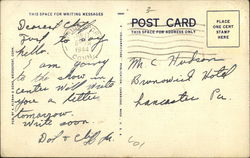 THIS SPACE FOR WRITING MESSAGES
POST CARD
THIS SPACE FOR ADDRESS ONLY
PLACE ONE CENT STAMP HERE
1944
Dearest Cliff
Just to say
hello.
I am going
to the show in
center. Will write
you a letter
tomorrow.
Write soon.
Dot & Cliff Jr.
Mr. C Hudson
Brunswick Hotel
Lancaster Pa.